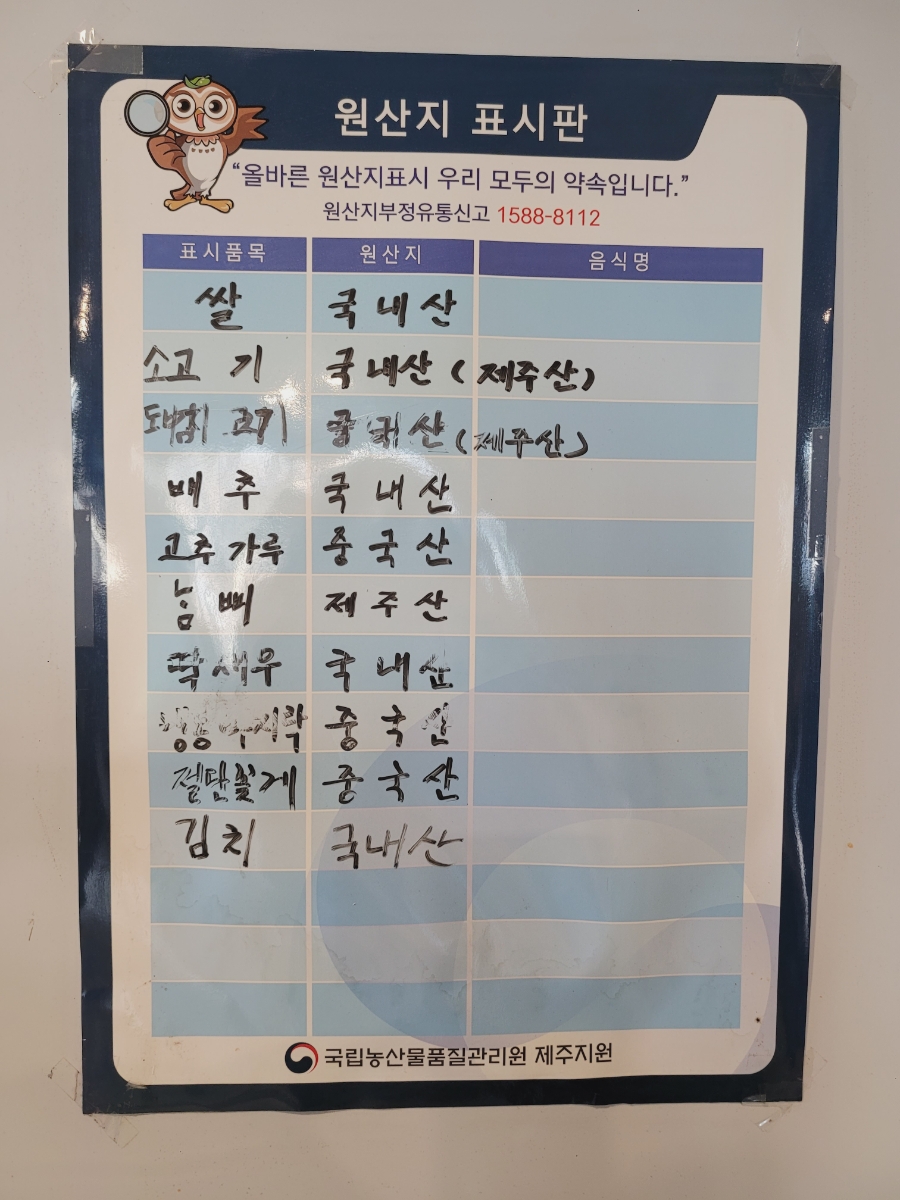 원산지 표시판
“올바른 원산지표시 우리 모두의 약속입니다.”
원산지부정유통신고 1588-8112
표시품목 원산지 음식명
쌀 국내산
소고기 국내산 (제주산)
돼지고기 국내산 (제주산)
배추 국내산
고추가루 중국산
놈삐 제주산
딱새우 국내산
냉동바지락 중국산
절단꽃게 중국산
김치 국내산
국립농산물품질관리원 제주지원